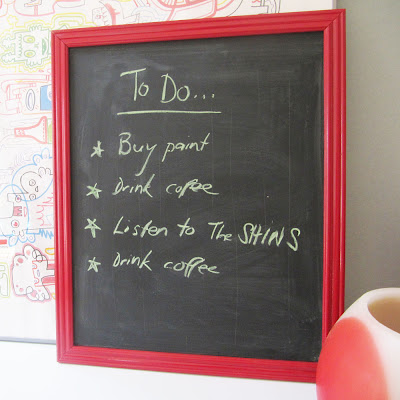 To Do...
★ Buy paint
★ Drink coffee
★ Listen to The SHINS
★ Drink coffee